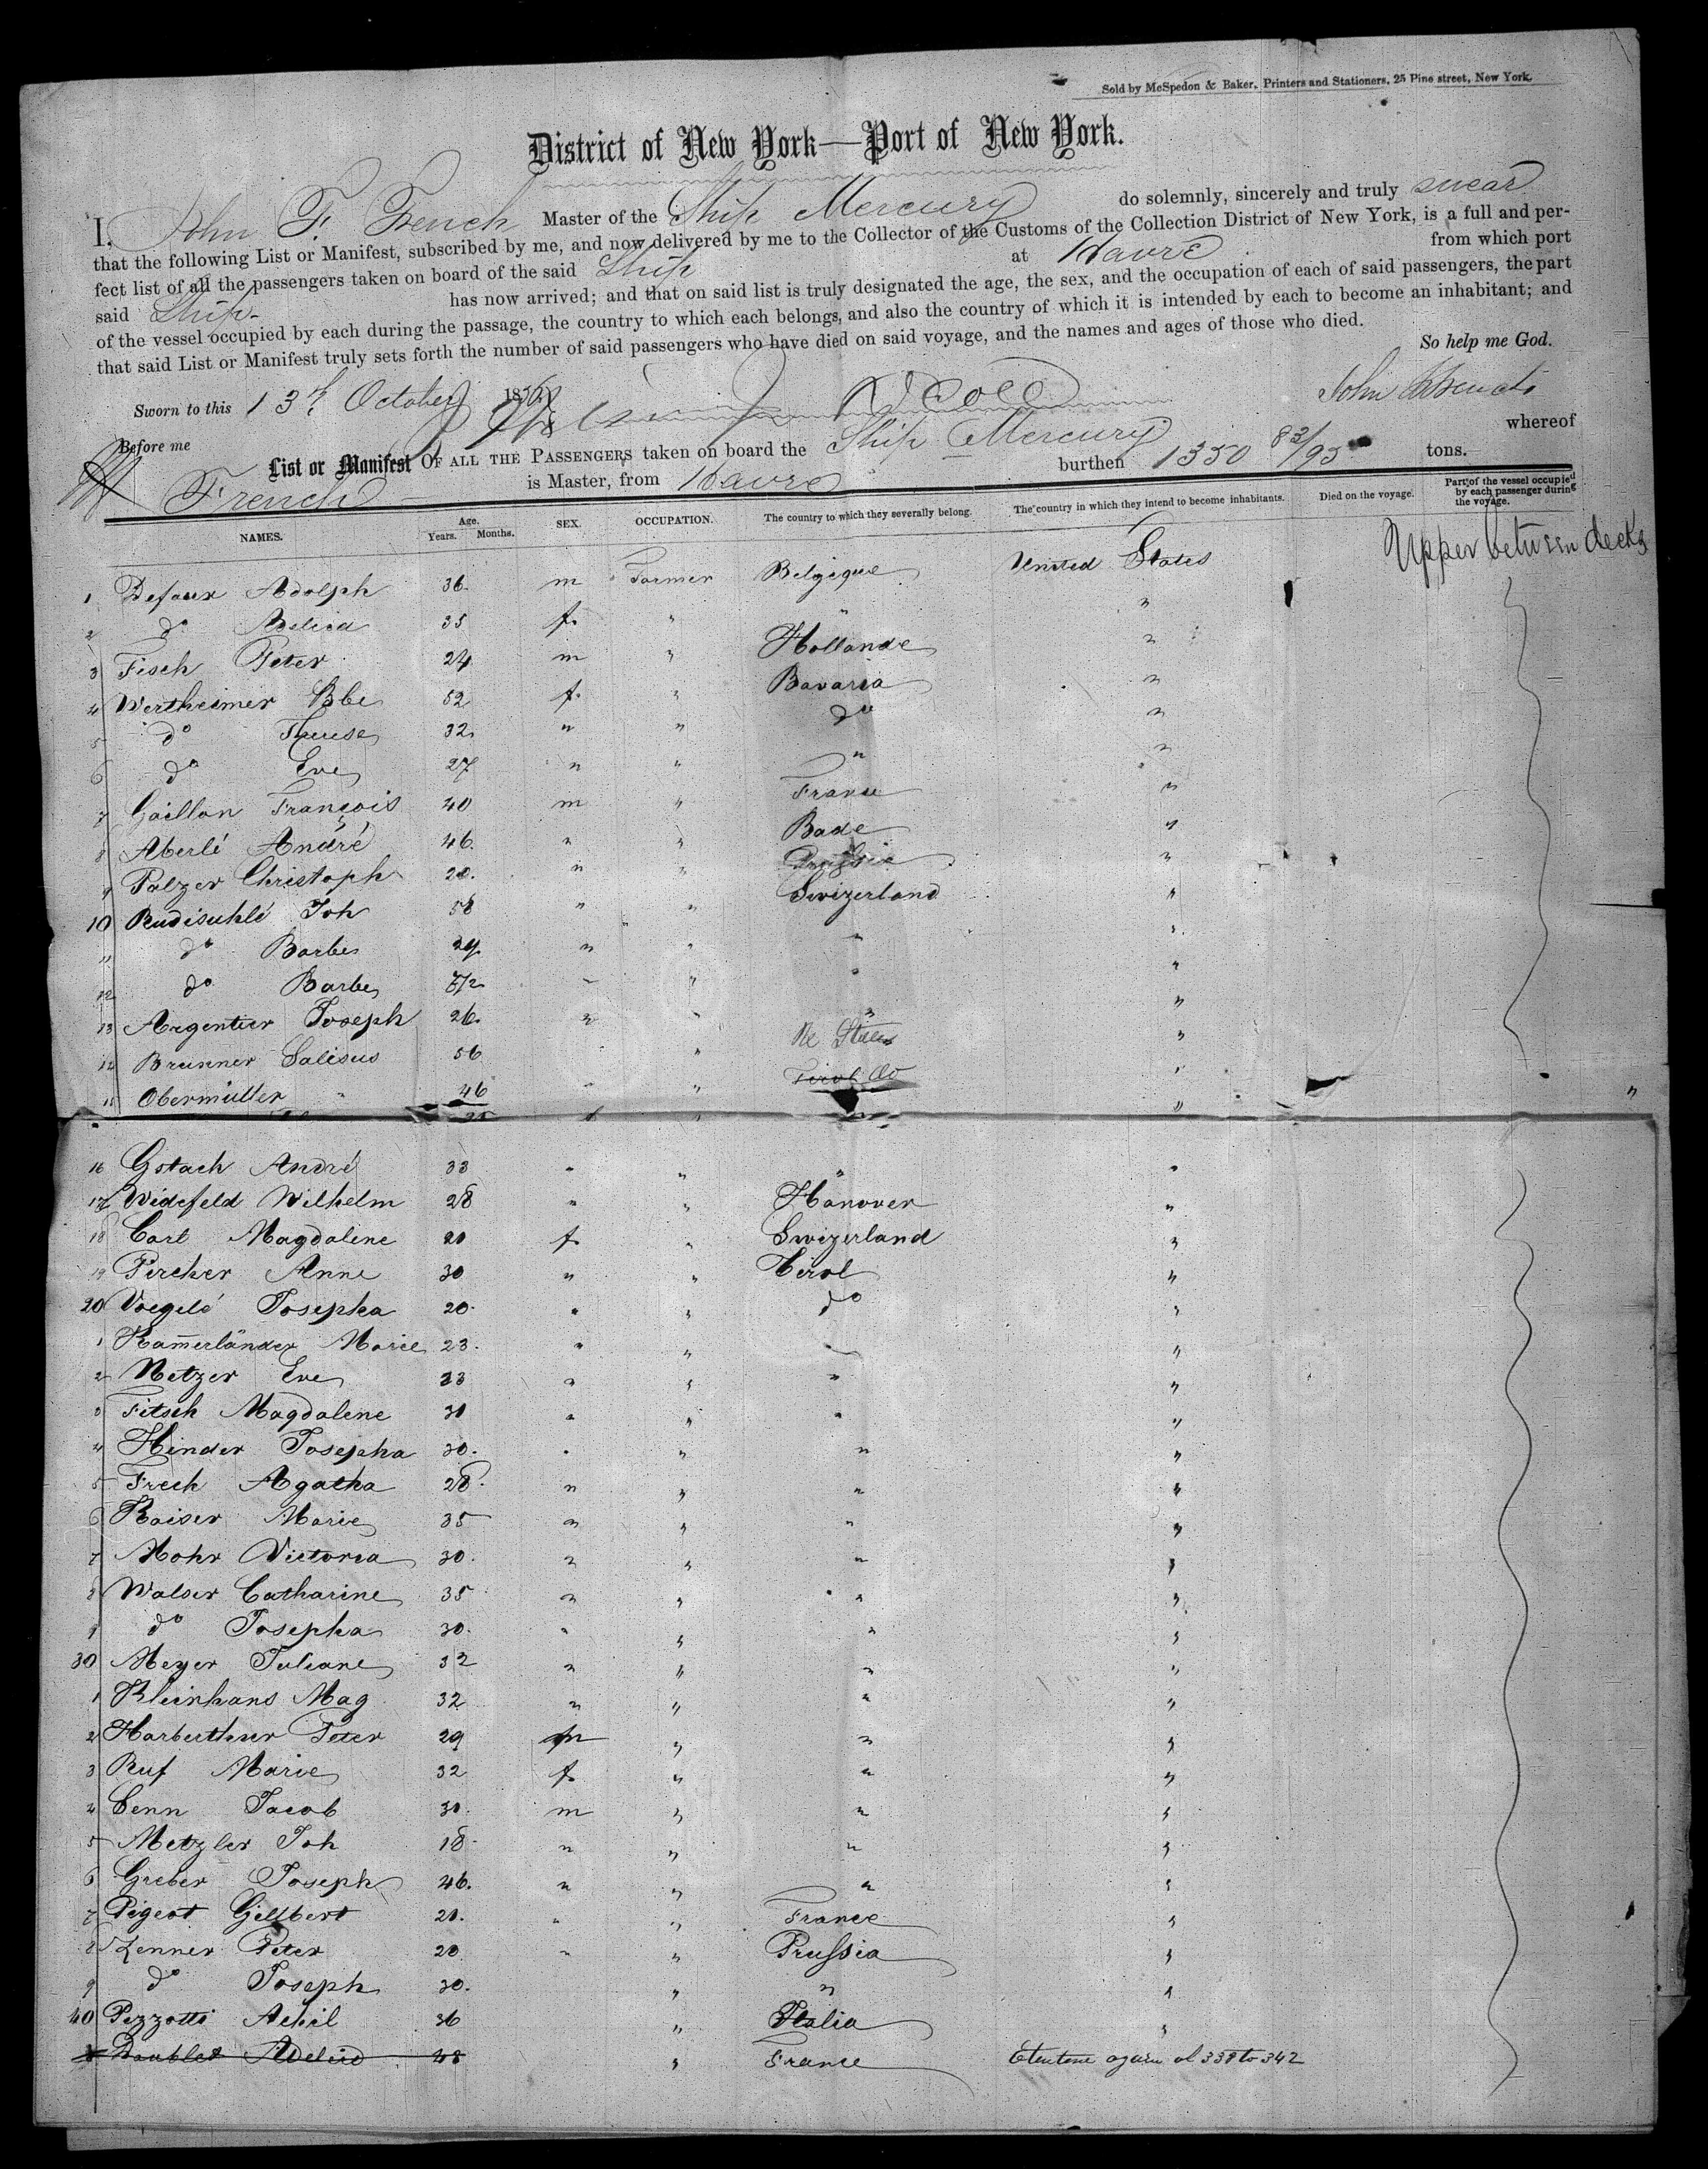 Sold by McSpedon & Baker, Printers and Stationers, 25 Pine street, New York.
District of New York—Port of New York.
I, John F. French Master of the Ship Mercury do solemnly, sincerely and truly swear
that the following List or Manifest, subscribed by me, and now delivered by me to the Collector of the Customs of the Collection District of New York, is a full and per-
fect list of all the passengers taken on board of the said Ship at Havre from which port
said Ship has now arrived; and that on said list is truly designated the age, the sex, and the occupation of each of said passengers, the part
of the vessel occupied by each during the passage, the country to which each belongs, and also the country of which it is intended by each to become an inhabitant; and
that said List or Manifest truly sets forth the number of said passengers who have died on said voyage, and the names and ages of those who died.
So help me God.
Sworn to this 13th October 185 John
Before me
List or Manifest OF ALL THE PASSENGERS taken on board the Ship Mercury whereof
French is Master, from Havre burthen 1350 83/95 tons.
NAMES. Age. Years. Months. SEX. OCCUPATION. The country to which they severally belong. The country in which they intend to become inhabitants. Died on the voyage. Part of the vessel occupied by each passenger during the voyage.
1 Defaux Adolph 36. m Farmer Belgique United States Upper between decks
2 do 35 f. " " "
3 Fisch Peter 24 m " Hollande "
4 Wertheimer Bbe 52 f. " Bavaria "
5 do 32 " " do "
6 do Eve 27 " " " "
7 Gaillon François 40 m " France "
8 Aberlé André 46. " " Bade "
9 Palzer Christoph 20. " " Prussia "
10 Rudisuhlé Joh 58 " " Swizerland "
11 do Barbe 29. " " " "
12 do Barbe 7/12 " " " "
13 Argentier Joseph 26. " " " "
14 Brunner 56 " "
15 Obermüller " 46 " " Tirol do "
16 Gstach André 33 " " " "
17 Widefeld Wilhelm 28 " " Hanover "
18 Carl Magdalene 20 f. " Swizerland "
19 Pircher Anne 30 " " Tirol "
20 Voegelé Josepha 20. " " do "
1 Kam̄erländer Marie 23. " " "
2 Netzer Eve 23 " " " "
3 Fitsch Magdalene 30 " " " "
4 Hinder Josepha 30. " " " "
5 Frech Agatha 28. " " " "
6 Kaiser Marie 35 " " " "
7 Mohr Victoria 30. " " " "
8 Walser Catharine 35 " " " "
9 do Josepha 30. " " " "
30 Meyer Juliane 32 " " " "
1 Kleinhans Mag 32 " " " "
2 Peter 29 m " " "
3 Ruf Marie 32 f. " " "
4 Senn Jacob 30. m " " "
5 Metzler Joh 18 " " " "
6 Greber Joseph 46. " " " "
7 Pigeot Gilbert 20. " " France "
8 Zenner Peter 20 " " Prussia "
9 do Joseph 30. " " "
40 Pezzotti Achil 36 " Italia "
Doublet 48 " France 338 to 342